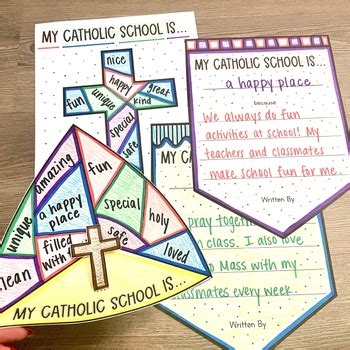 MY CATHOLIC SCHOOL IS...
nice
happy
great
fun
unique
kind
special
safe
MY CATHOLIC SCHOOL IS...
a happy place
because
We always do fun
activities at school! My
teachers and classmates
make school fun for me.
Written By
MY CA
pray together
n class. I also love
o Mass with my
lassmates every week.
Written By
amazing
fun
unique
a happy
place
special
holy
filled
with
safe
loved
clean
MY CATHOLIC SCHOOL IS...